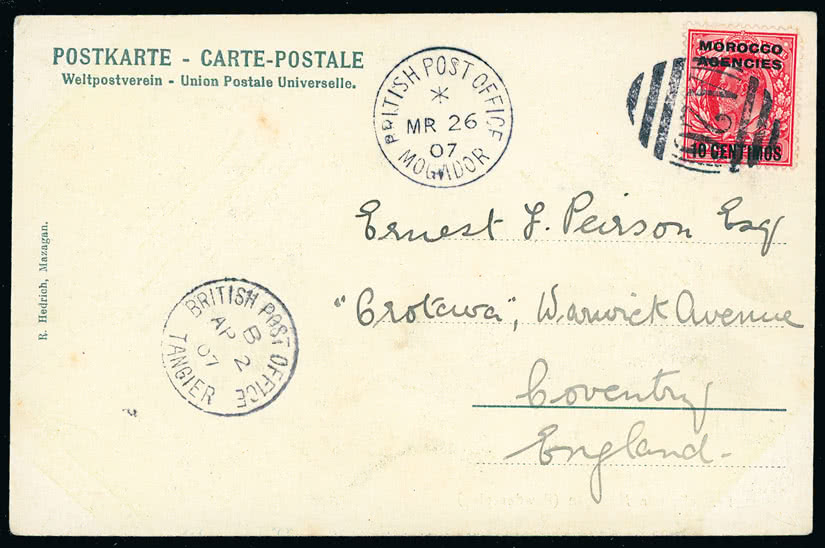 POSTKARTE - CARTE-POSTALE
Weltpostverein - Union Postale Universelle.
BRITISH POST OFFICE
MR 26
07
MOGADOR
MOROCCO
AGENCIES
10 CENTIMOS
Ernest J. Peirson Esq
"Orotava", Warwick Avenue
Coventry
England-
R. Hedrich, Mazagan.
BRITISH POST OFFICE
B
AP 2
07
TANGIER